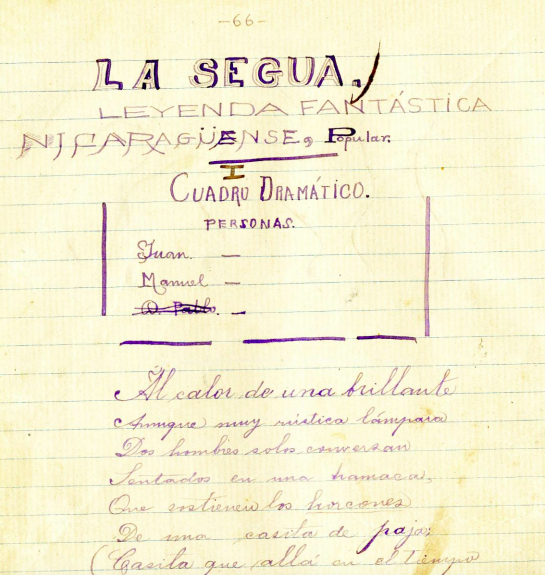 -66-
LA SEGUA.
LEYENDA FANTÁSTICA
NICARAGÜENSE, Popular.
I
CUADRO DRAMÁTICO.
PERSONAS.
Juan. —
Manuel —
D. Pablo. —
Al calor de una brillante
Aunque muy rústica lámpara
Dos hombres solos conversan
Sentados en una hamaca,
Que sostienen los horcones
De una casita de paja;
(Casita que allá en el tiempo